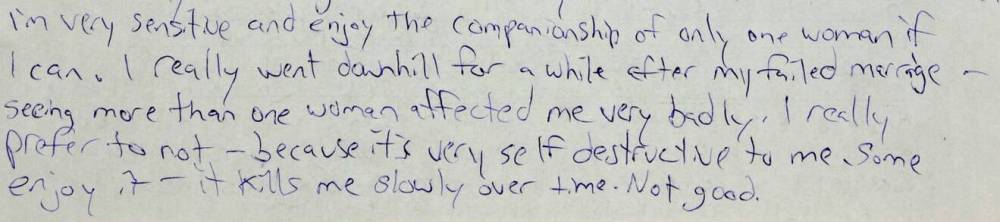 I'm very sensitive and enjoy the companionship of only one woman if
I can. I really went downhill for a while after my failed marrige –
seeing more than one woman affected me very badly. I really
prefer to not – because it's very self destructive to me. Some
enjoy it – it kills me slowly over time. Not good.